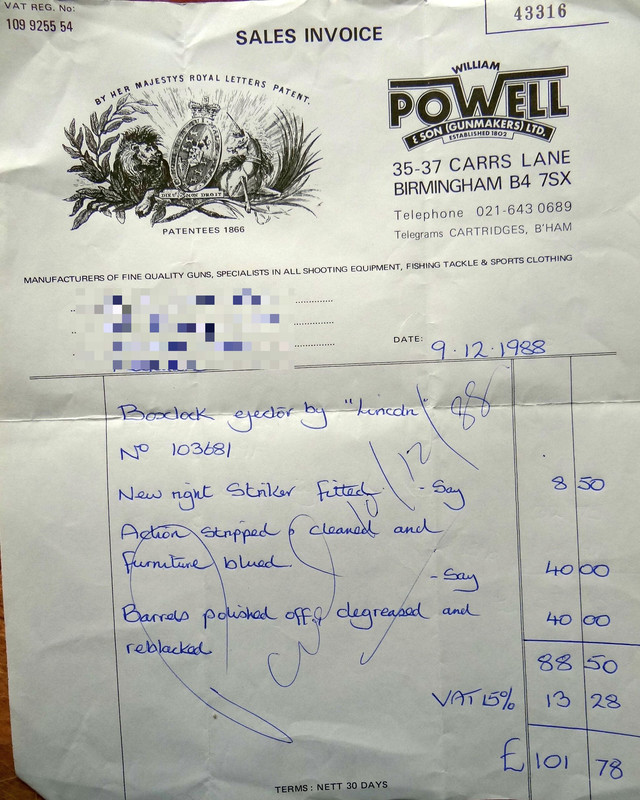 VAT REG. No:
109 9255 54
SALES INVOICE
43316
BY HER MAJESTYS ROYAL LETTERS PATENT.
DIEU MON DROIT
PATENTEES 1866
WILLIAM
POWELL
& SON (GUNMAKERS) LTD.
ESTABLISHED 1802
35-37 CARRS LANE
BIRMINGHAM B4 7SX
Telephone 021-643 0689
Telegrams CARTRIDGES, B'HAM
MANUFACTURERS OF FINE QUALITY GUNS, SPECIALISTS IN ALL SHOOTING EQUIPMENT, FISHING TACKLE & SPORTS CLOTHING
DATE: 9.12.1988
Boxlock ejector by "Lincoln"
No 103681
New right Striker fitted. - Say 8 50
Action stripped & cleaned and
furniture blued. - Say 40 00
Barrels polished off, degreased and 40 00
reblacked
88 50
VAT 15% 13 28
£ 101 78
/12/88
TERMS: NETT 30 DAYS